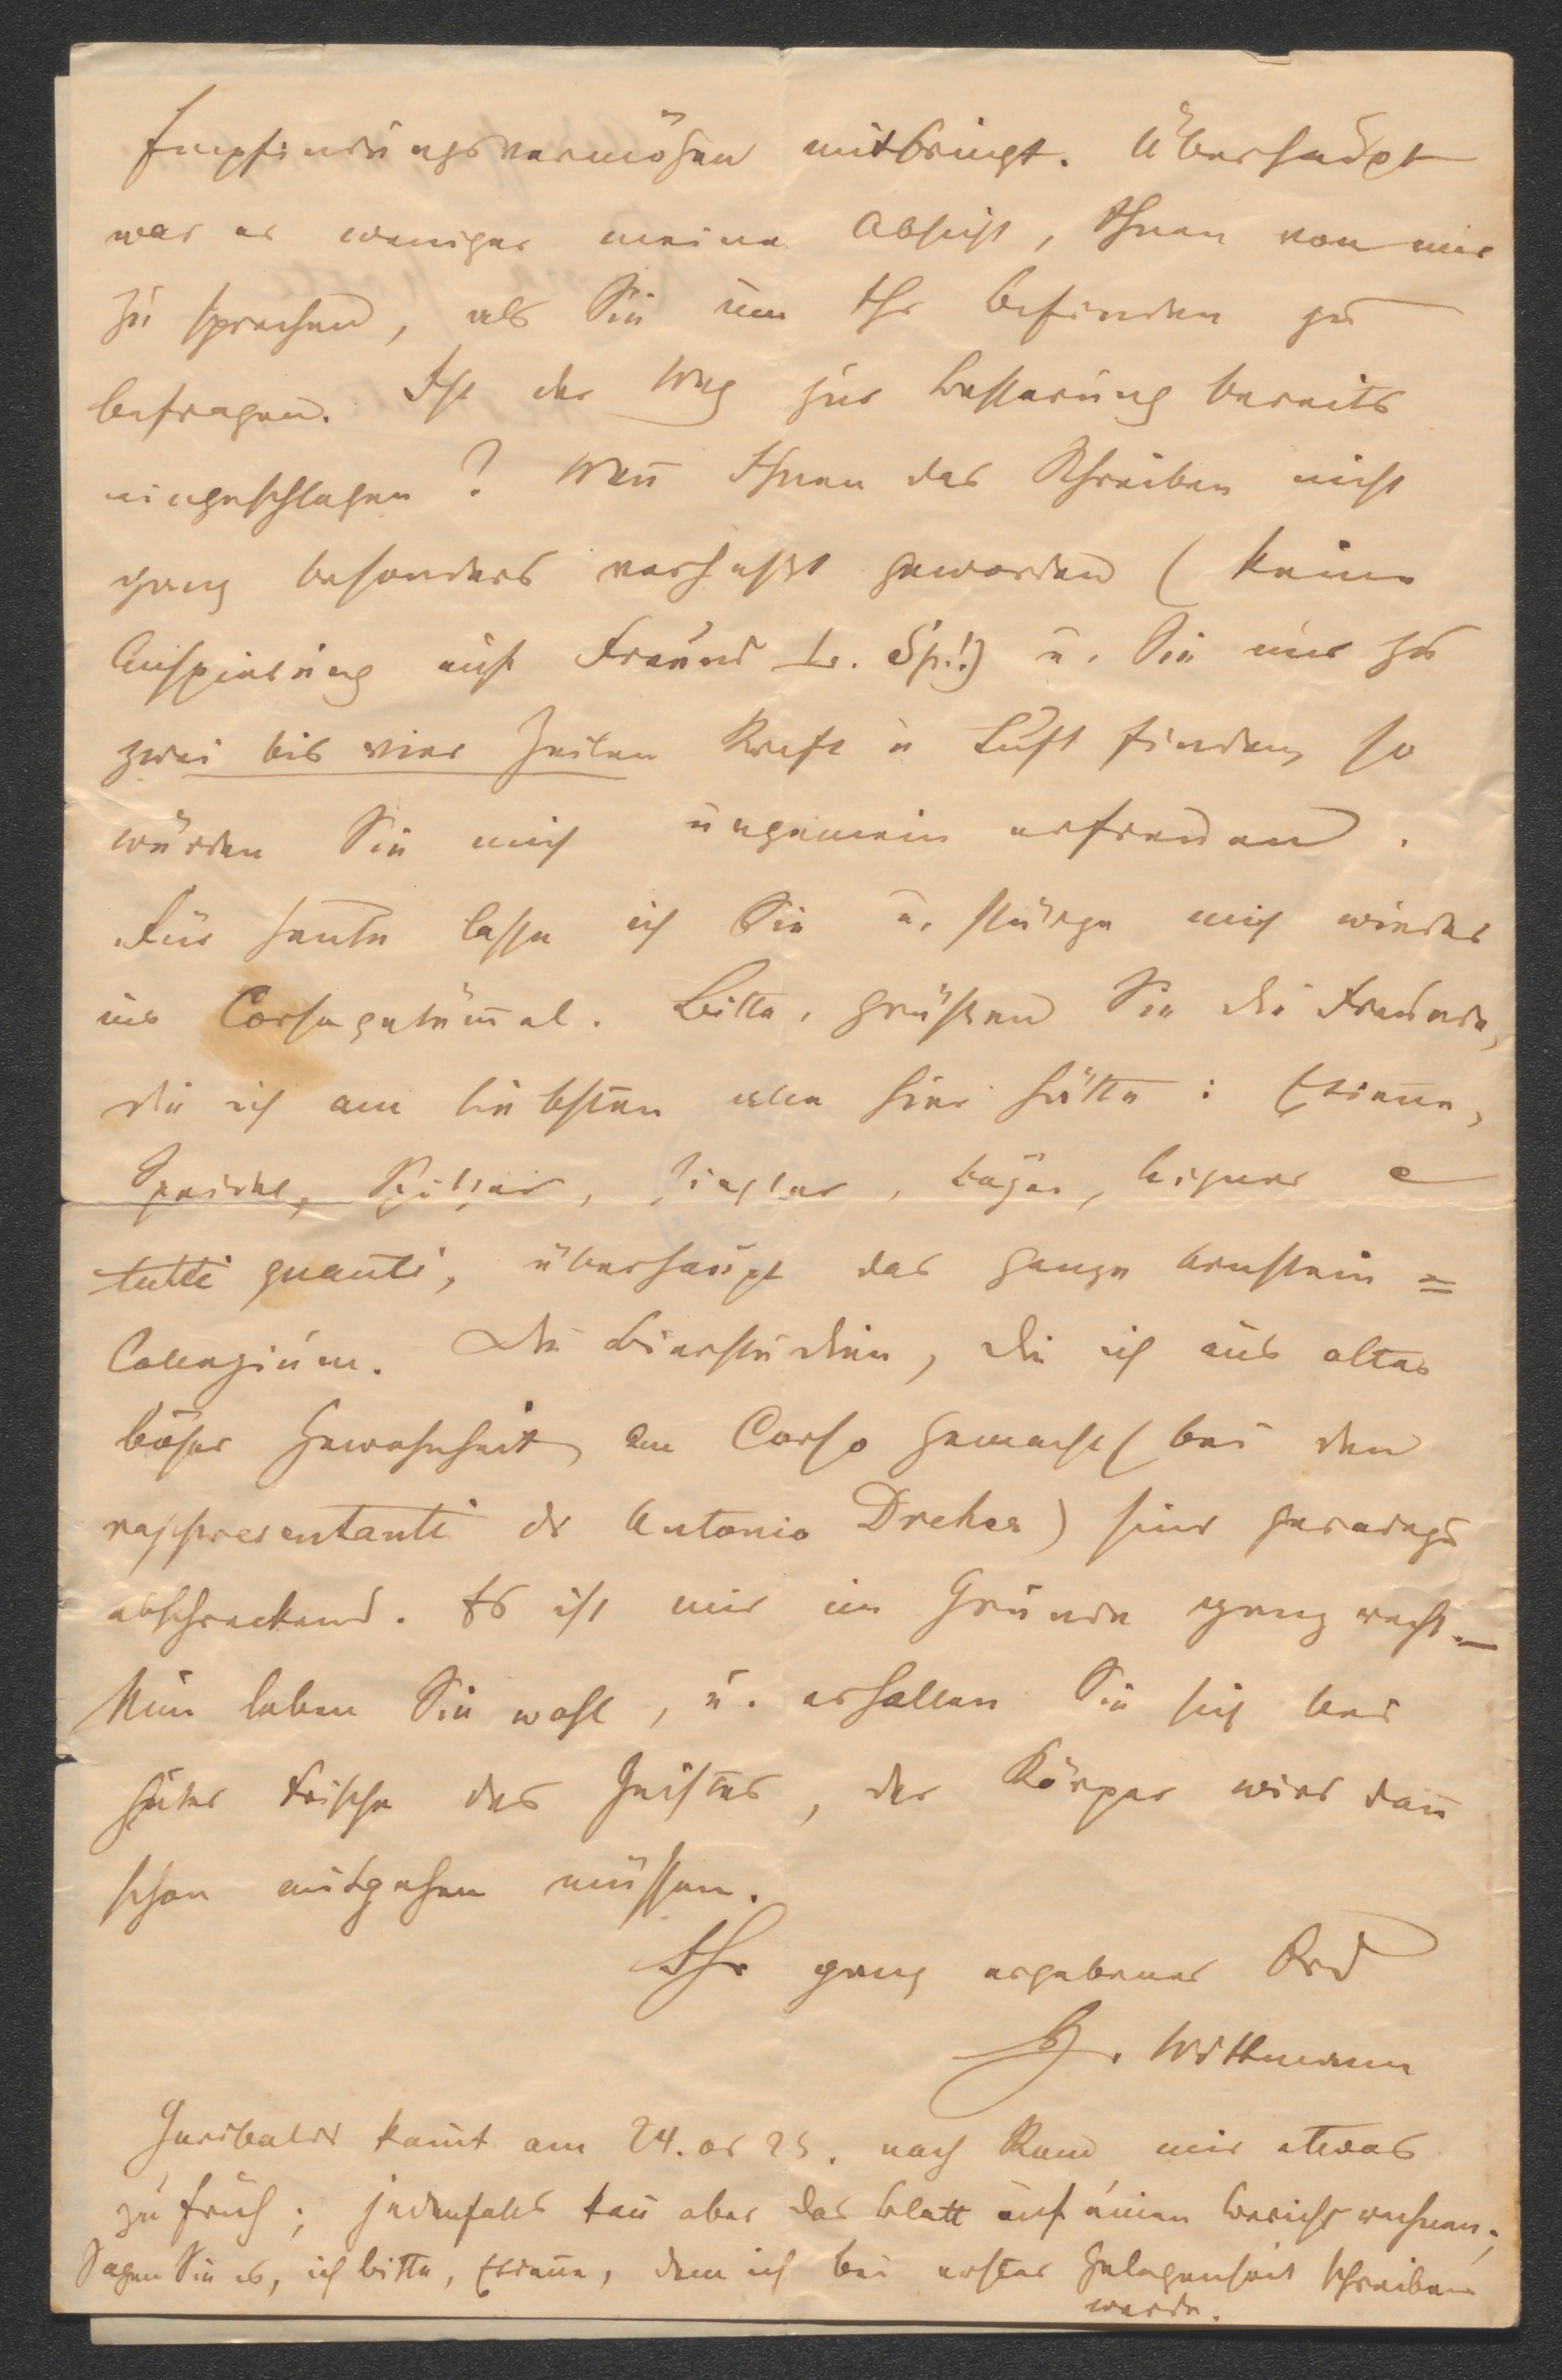 Empfindungsvermögen mitbringt. Überhaupt
war es weniger meine Absicht, Ihnen von mir
zu sprechen, als Sie um Ihr Befinden zu
befragen. Ist der Weg zur Besserung bereits
eingeschlagen? Wen̄ Ihnen das Schreiben nicht
ganz besonders verhaßt geworden (keine
Anspielung auf Freund L. Sp.!) u. Sie nur zu
zwei bis vier Zeilen Kraft u Lust finden, so
würden Sie mich ungemein erfreuen.
Für heute lasse ich Sie u. stürze mich wieder
ins Corsogetüm̄el. Bitte, grüßen Sie die Freunde,
die ich am liebsten alle hier hätte: Etien̄e,
Speidel, Spitzer, Ziegler, e
tutti quanti, überhaupt das ganze Arnstein=
Collegium. Die Bierstudien, die ich aus alter
böser Gewohnheit am Corso gemacht (bei den
rappresentanti di Antonio Dreher) sind geradezu
abschreckend. Es ist mir im Grunde ganz recht. –
Nun leben Sie wohl, u. erhalten Sie sich bei
guter Frische des Geistes, der Körper wird dan̄
schon mitgehen müssen.
Ihr ganz ergebener
H. Wittmann
Garibaldi kom̄t am 24. od 25. nach Rom mir etwas
zu früh; jedenfalls kan̄ aber das Blatt auf einen Bericht rechnen;
Sagen Sie es, ich bitte, Etien̄e, dem ich bei erster Gelegenheit schreiben
werde.